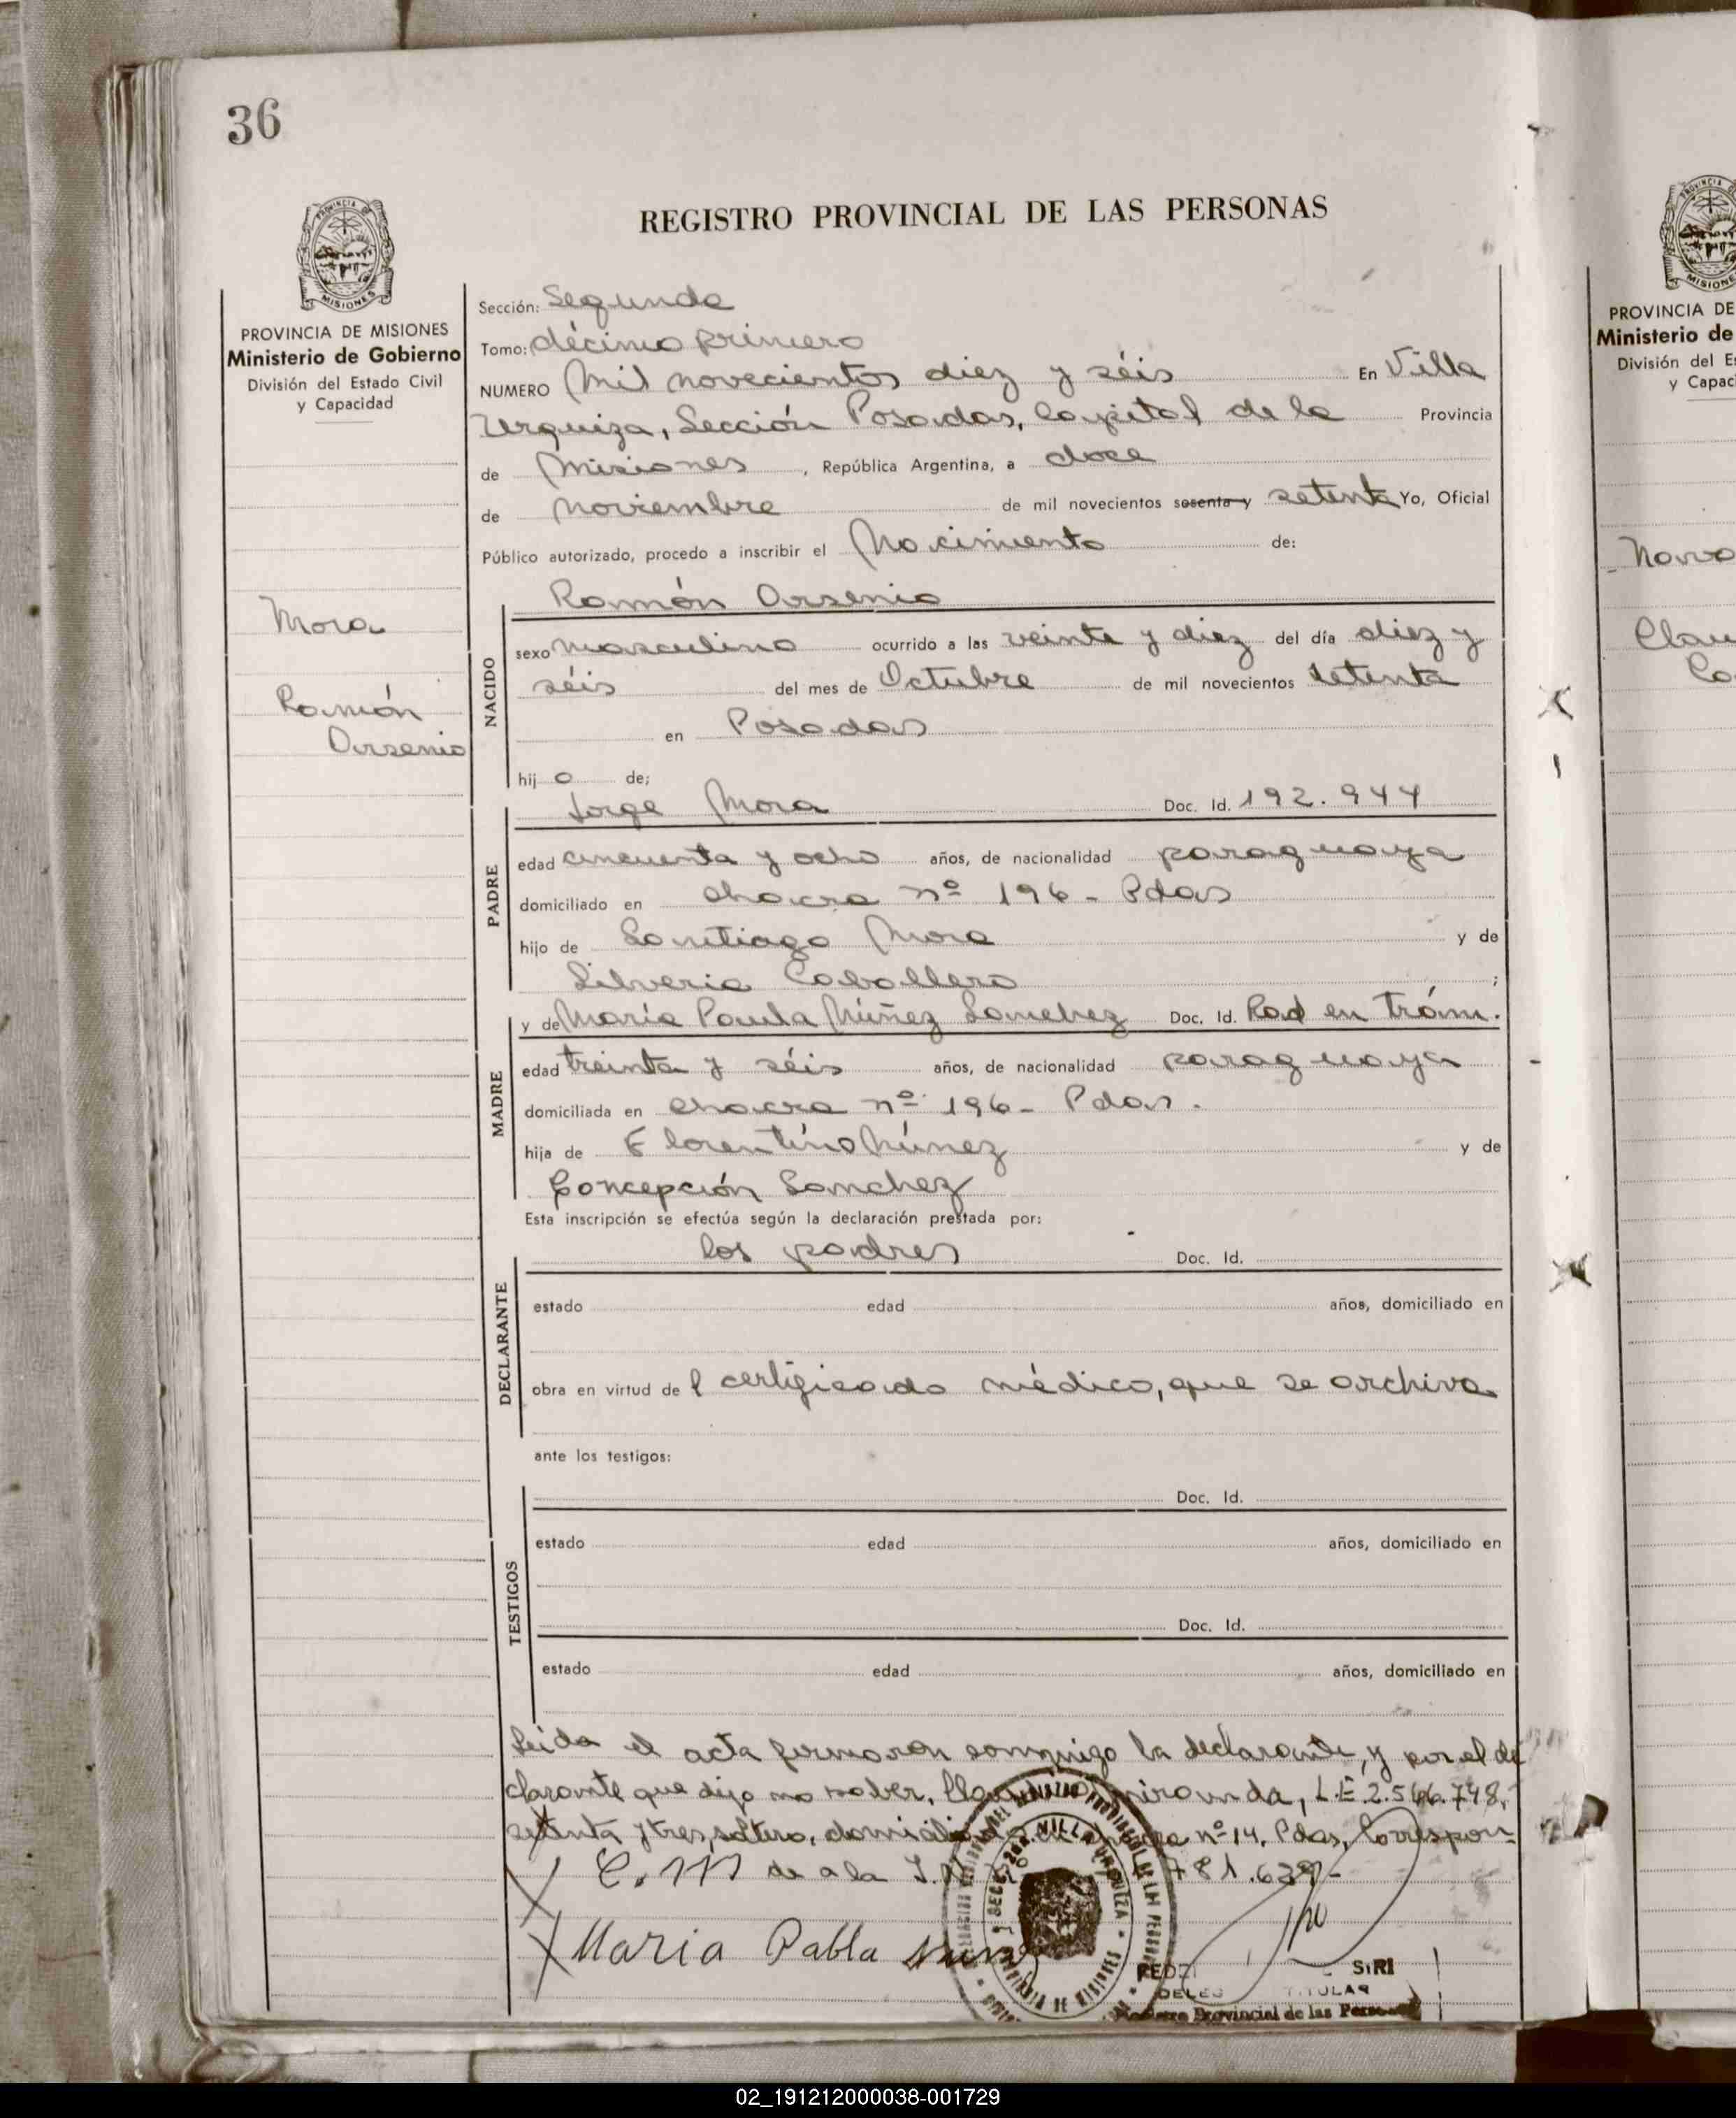 36
REGISTRO PROVINCIAL DE LAS PERSONAS
PROVINCIA DE MISIONES
Ministerio de Gobierno
División del Estado Civil
y Capacidad
Mora
Ramón
Arsenio
Sección: Segunda
Tomo: décimo primero
NUMERO Mil novecientos diez y séis En Villa
Urquiza, Sección Posadas, Capital de la Provincia
de Misiones, República Argentina, a doce
de noviembre de mil novecientos sesenta y setenta Yo, Oficial
Público autorizado, procedo a inscribir el Nacimiento de:
Ramón Arsenio
NACIDO
sexo masculino ocurrido a las veinte y diez del día diez y
séis del mes de Octubre de mil novecientos setenta
en Posadas
hij o de;
Jorge Mora Doc. Id. 192.944
PADRE
edad cincuenta y ocho años, de nacionalidad paraguaya
domiciliado en chacra nº 196 - Pdas
hijo de Santiago Mora y de
Silveria Caballero ;
y de María Paula Núñez Sanchez Doc. Id. Rad en trám.
MADRE
edad treinta y séis años, de nacionalidad paraguaya
domiciliada en chacra nº 196 - Pdas.
hija de Florentino Núnez y de
Concepción Sanchez
Esta inscripción se efectúa según la declaración prestada por:
los padres Doc. Id.
DECLARANTE
estado edad años, domiciliado en
obra en virtud de l certificado médico, que se archiva
ante los testigos:
Doc. Id.
TESTIGOS
estado edad años, domiciliado en
Doc. Id.
estado edad años, domiciliado en
Leida el acta firmaron conmigo la declarante, y por el de
clarante que dijo no saber, Miranda, L.E. 2.566.748,
setenta y tres, soltero, domiciliado en chacra nº 14, Pdas, Correspon-
C. M de a la 781.639-
Maria Pabla
VILLA URQUIZA
SIRI
TITULAR
Registro Provincial de las Personas
PROVINCIA DE
Ministerio de
División del E
y Capac
Clau
02_191212000038-001729